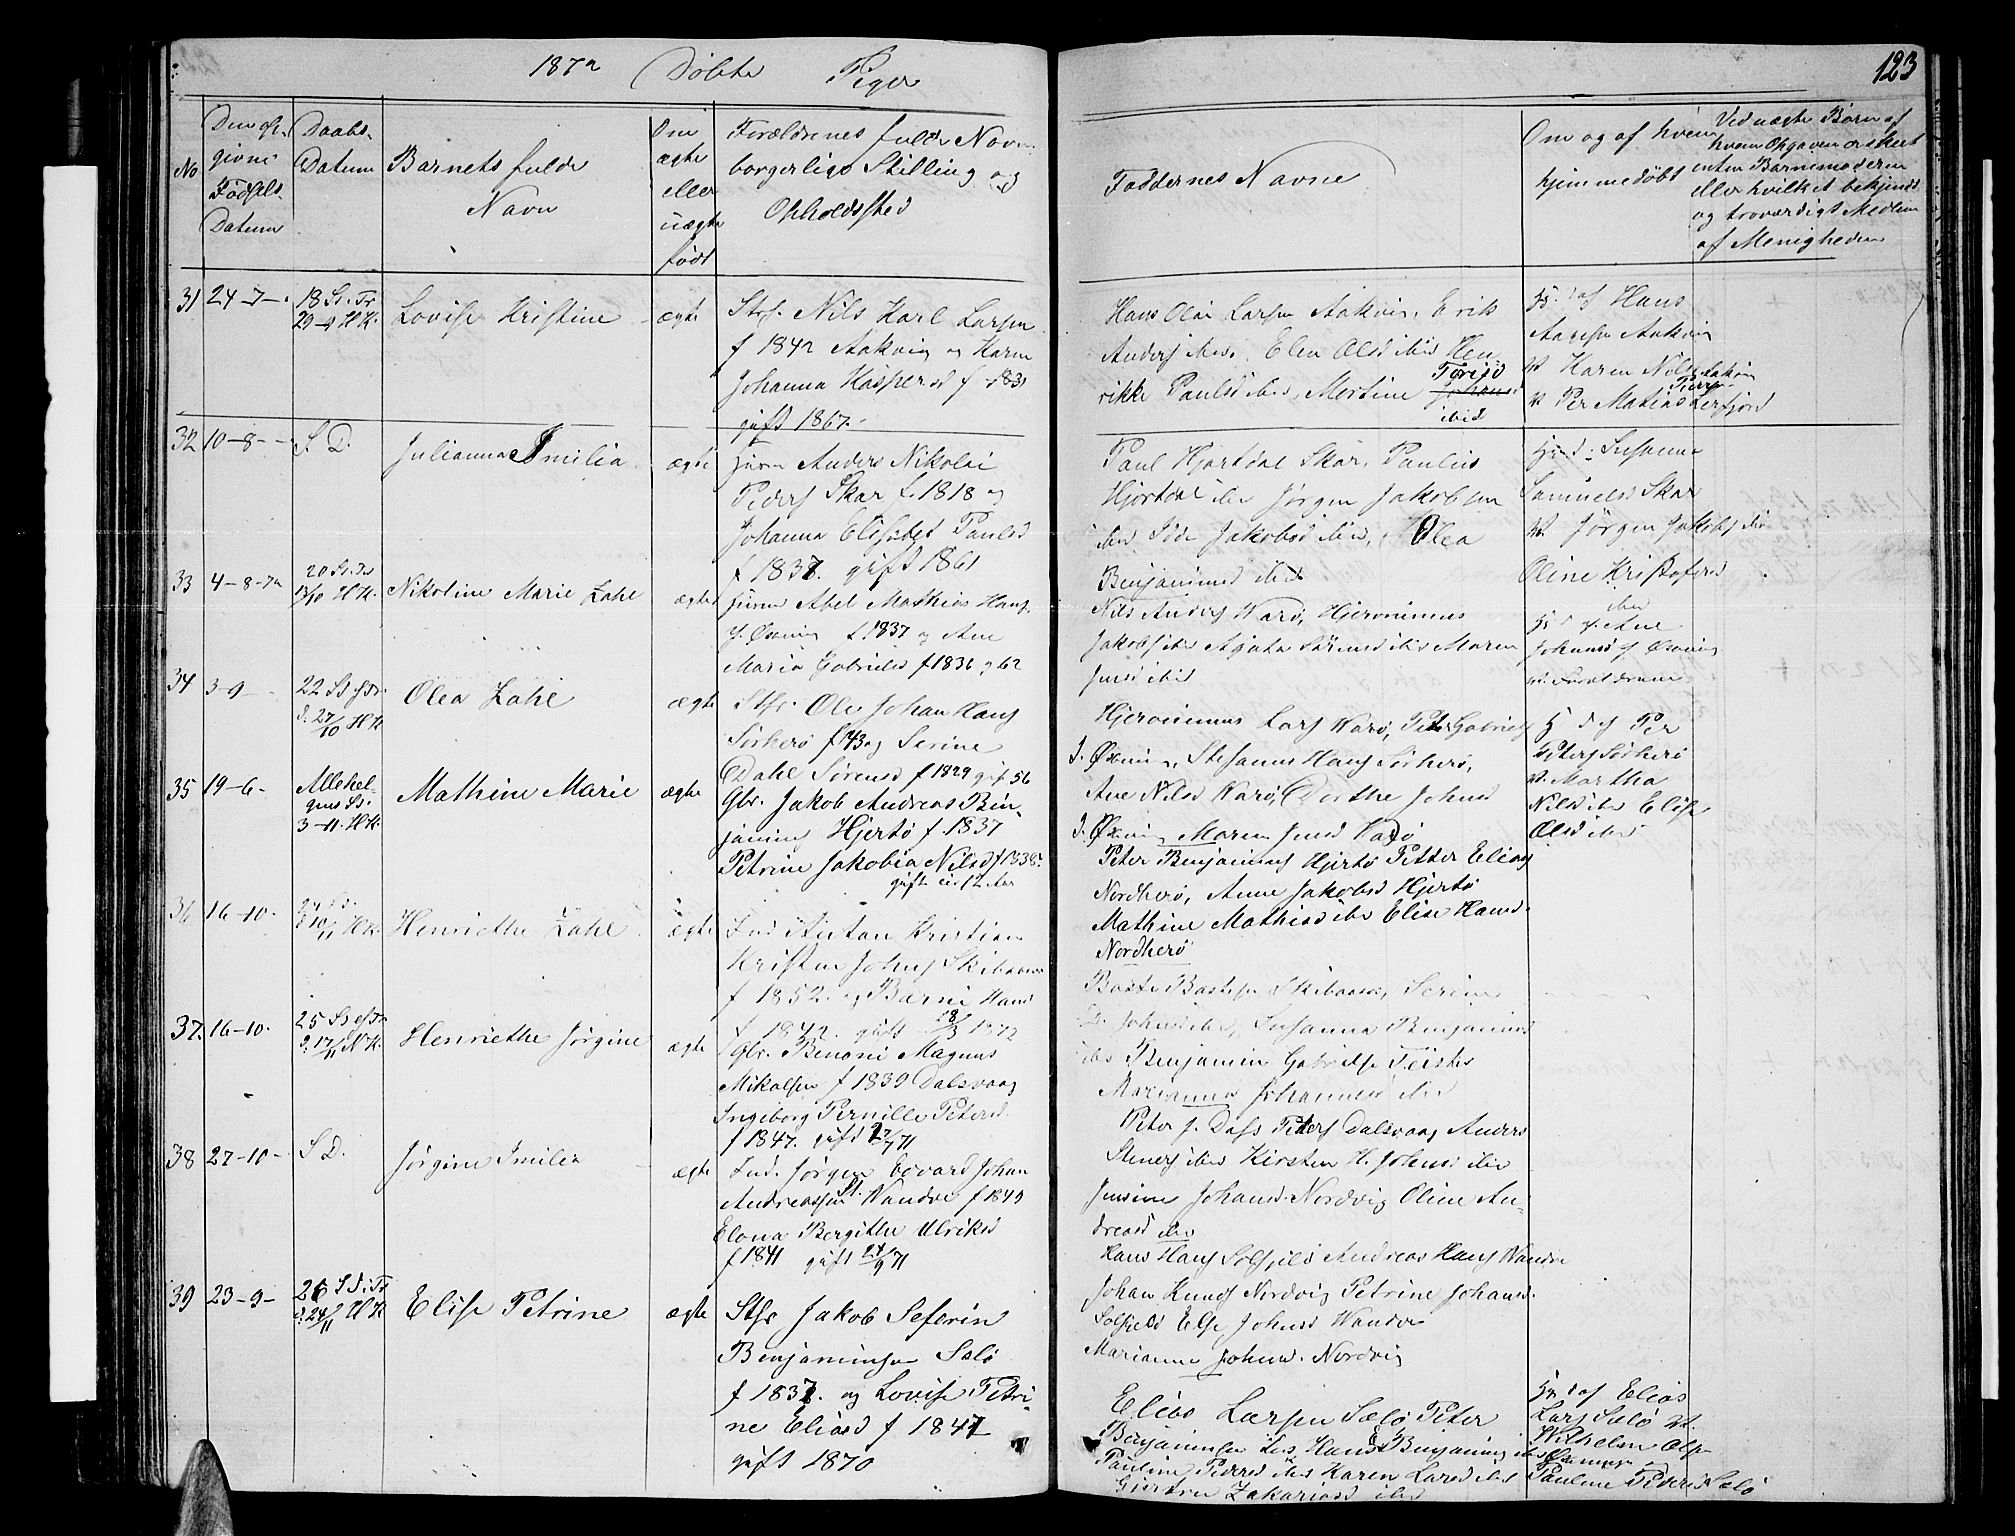 1872 Döbte Piger
123
No
Den op-
givne
Födsels-
Datum
Daabs-
Datum
Barnets fulde
Navn
Om
ægte
eller
uægte
födt
Forældrenes fulde Navn
borgerlige Stilling og
Opholdssted
Faddernes Navne
Om og af hvem
hjemmedöbt
Ved uægte Börn af
hvem Opgaven er skeet
enten Barnemoderen
eller hvilket bekjendt
og troværdigt Medlem
af Menigheden
31 24-7-
29-9 HK.
Lovise Kristine
ægte
Nils Karl Larsen
f 1842 Aakvig og Karen
Johanna Kaspersd f 1831
gift 1867.
Hans Olai Larsen Aakvig, Erik
Anders ibid. Elen Olsd ibid Hen-
rikke Paulsd ibid, Mortine
ibid
Hj. d af Hans
Aakvig
Karen Nilsd
Per Matias Lerfjord
32 10-8-
S. D.
Julianna Emilia
ægte
Anders Nikolai
Peders Skar f. 1818 og
Johanna Elisabet Paulsd
f 1837. gift 1861
Paul Hjortdal Skar, Paulus
Hjortdal ibid Jörgen Jakobsen
ibid Jakobsd ibid, Olea
Benjaminsd ibid
Hj. d. Susanna
Samuelsd Skar
Jörgen Jakobs ibid
Oline Kristofersd
ibid
33 4-8-72
13/10 HK.
Nikoline Marie Zahl
ægte
Abel Mathias Hans
f 1837 og Ane
Maria Gabrielsd f 1836 g 62
Nils Anders Warö, Hjeronimus
Jakobs ibid Agata Sörensd ibid Maren
Jensd ibid
Hj d af Ane
Johansd
34 3-9-
27/10 HK
Olea Zahl
ægte
Ole Johan Hans
Sörherö f 43 og Serine
Dahl Sörensd f 1829 gift 56
Hjeronimus Lars Warö, Peter Gabriels
Stefanus Hans Sörherö,
Ane Nilsd Warö, Dorthe Johnsd
Maren Jensd Warö
Hj d af Per
Peters Sörherö
Martha
Nilsd ibid Elise
Olsd ibid
35 19-6-
Allehel-
gens S.
3-11. HK.
Mathine Marie
ægte
Gbr. Jakob Andreas Ben-
jamins Hjertö f. 1837
Petrine Jakobia Nilsd f 1838
gift 12 Aar
Peter Benjamins Hjertö Petter Elias
Nordherö, Anne Jakobsd Hjertö
Mathine Mathisd ibid Elise Hansd
Nordherö
36 16-10.
Henriethe Zahl
ægte
Kristian
Kristen Johns Skibaasen
f 1852. og Hansd
f 1842. gift 28/3 1872
Skibaasen, Serine
Johnsd ibid, Susanna Benjaminsd
ibid Benjamin Gabrielsen
Marianna Johannesd ibid
37. 16-10.
25 S ef Tr
17/11 NK.
Henriethe Jörgine
ægte
Gbr. Benoni Magnus
Mikalsen f 1839 Dalsvaag
Ingeborg Pernille Petersd.
f 1847. gift 27/7 71
Peter J. Dass Peters Dalsvaag Anders
Steners ibid Kirsten H. Johnsd ibid
Jensine Johansd Nordvig Oline An-
dreasd ibid
38 27-10-
S. D.
Jörgine Emilia
ægte
Ind. Jörgen Johan
Andreassen Wandve f 1849
Elona Bergithe Ulriksd
f 1841 gift 24/9 71
Hans Hans Solfjeld Andreas Hans Wandve
Johan Knuds Nordvig Petrine Johansd.
Solfjeld Else Johnsd Wandve
Marianne Johnsd. Nordvig
39 23-9-
26 S. e. Tr
24/11 HK
Elise Petrine
ægte
Stfr Jakob Seferin
Benjaminsen Sælö
f 1837. og Lovise Petri-
ne Eliasd f 1847
gift 1870
Elias Larsen Sælö Peter
Benjaminsen ibid Hans Benjamins ibid
Pauline Pedersd ibid Karen Larsd ibid
Zakariasd ibid
Hj. d af Elias
Lars Sælö
Wilhelm Ols
Pauline Pedersd Sælö